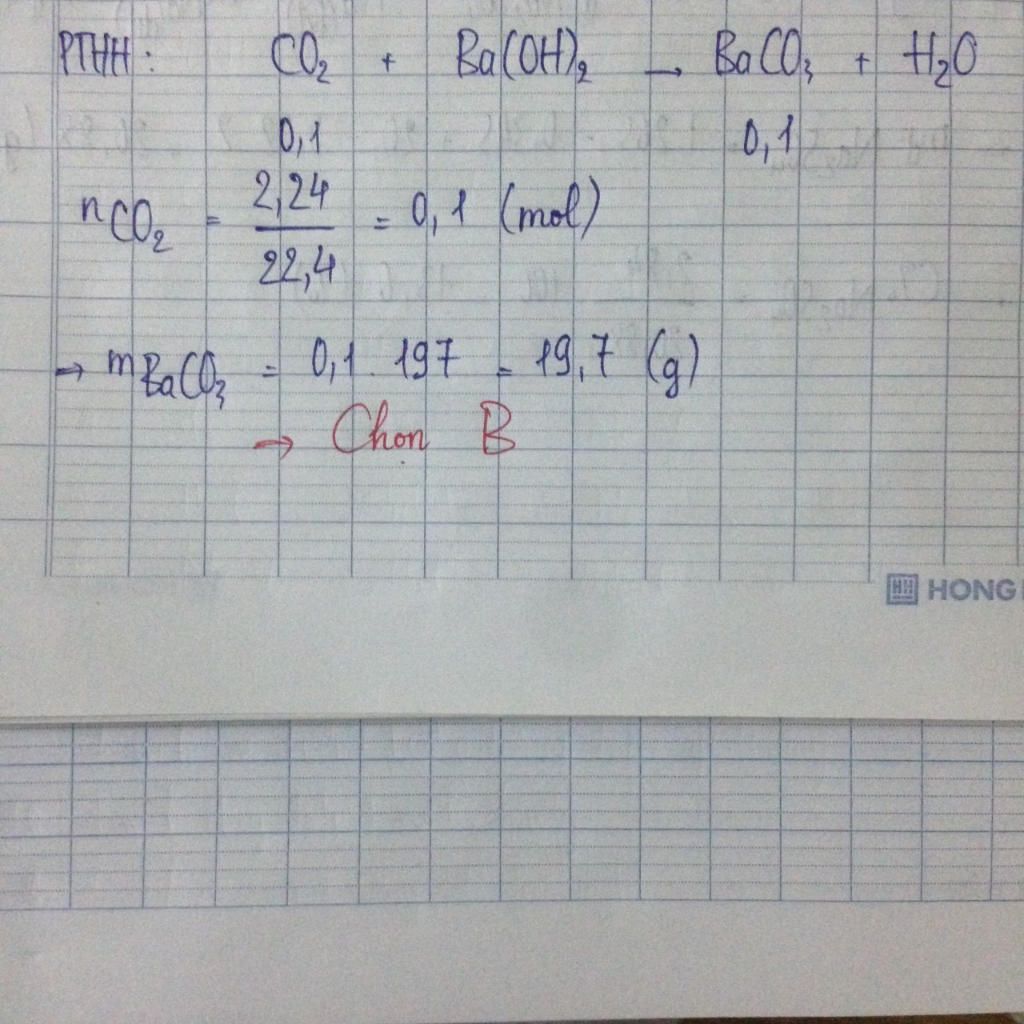 PTHH: CO₂ + Ba(OH)₂ → BaCO₃ + H₂O
0,1 0,1
nCO₂ = 2,24 / 22,4 = 0,1 (mol)
→ mBaCO₃ = 0,1 . 197 = 19,7 (g)
→ Chọn B
HH HONG